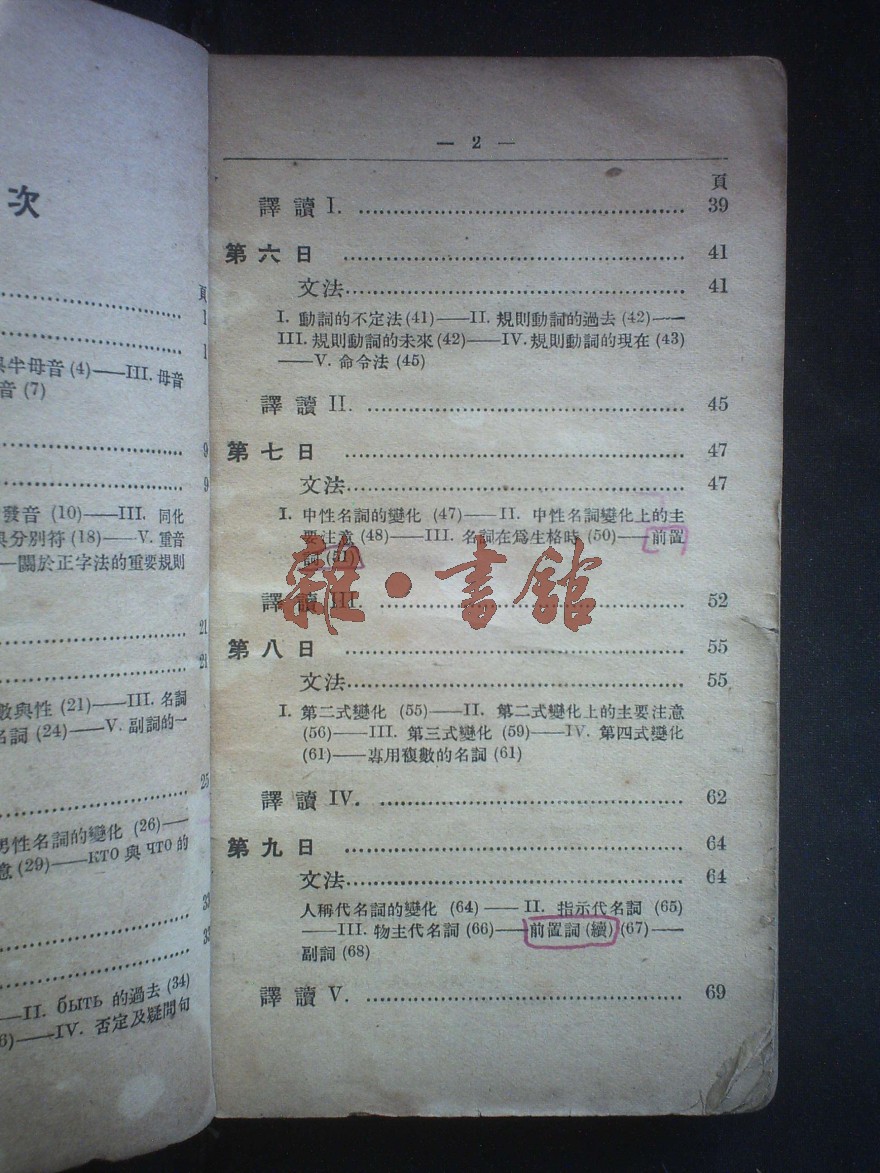 次
頁
1
1
與半母音 (4)——III. 母音
音 (7)
9
9
發音 (10)——III. 同化
與分別符 (18)——V. 重音
—關於正字法的重要規則
21
21
數與性 (21)——III. 名詞
名詞 (24)——V. 副詞的一
25
男性名詞的變化 (26)——
意 (29)——КТО 與 ЧТО 的
33
33
——II. быть 的過去 (34)
6)——IV. 否定及疑問句
— 2 —
頁
譯讀 I. 39
第六日 41
文法 41
I. 動詞的不定法 (41)——II. 規則動詞的過去 (42)——
III. 規則動詞的未來 (42)——IV. 規則動詞的現在 (43)
——V. 命令法 (45)
譯讀 II. 45
第七日 47
文法 47
I. 中性名詞的變化 (47)——II. 中性名詞變化上的主
要注意 (48)——III. 名詞在爲生格時 (50)——前置
詞 (51)
譯讀 III. 52
雜·書館
第八日 55
文法 55
I. 第二式變化 (55)——II. 第二式變化上的主要注意
(56)——III. 第三式變化 (59)——IV. 第四式變化
(61)——專用複數的名詞 (61)
譯讀 IV. 62
第九日 64
文法 64
人稱代名詞的變化 (64)——II. 指示代名詞 (65)
——III. 物主代名詞 (66)——前置詞 (續) (67)——
副詞 (68)
譯讀 V. 69